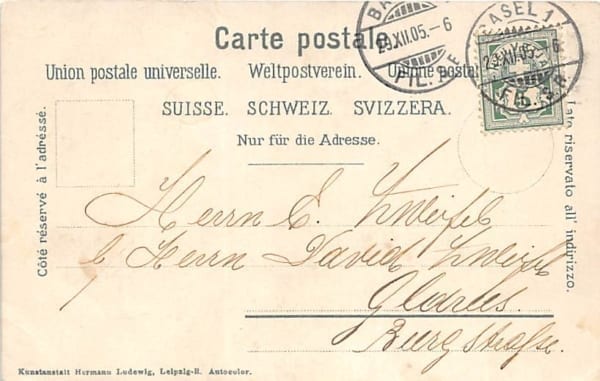 Carte postale.
Union postale universelle. Weltpostverein. Unione postale
SUISSE. SCHWEIZ. SVIZZERA.
Nur für die Adresse.
Côté réservé à l'adresse.
Lato riservato all' indirizzo.
BASEL 1
29.XII.05.-6
FIL.
BASEL 1
29.XII.05.-6
FIL.
Herrn E. Zweifel
b/ Herrn David Zweifel
Glarus.
Burgstraße.
Kunstanstalt Hermann Ludewig, Leipzig-R. Autocolor.